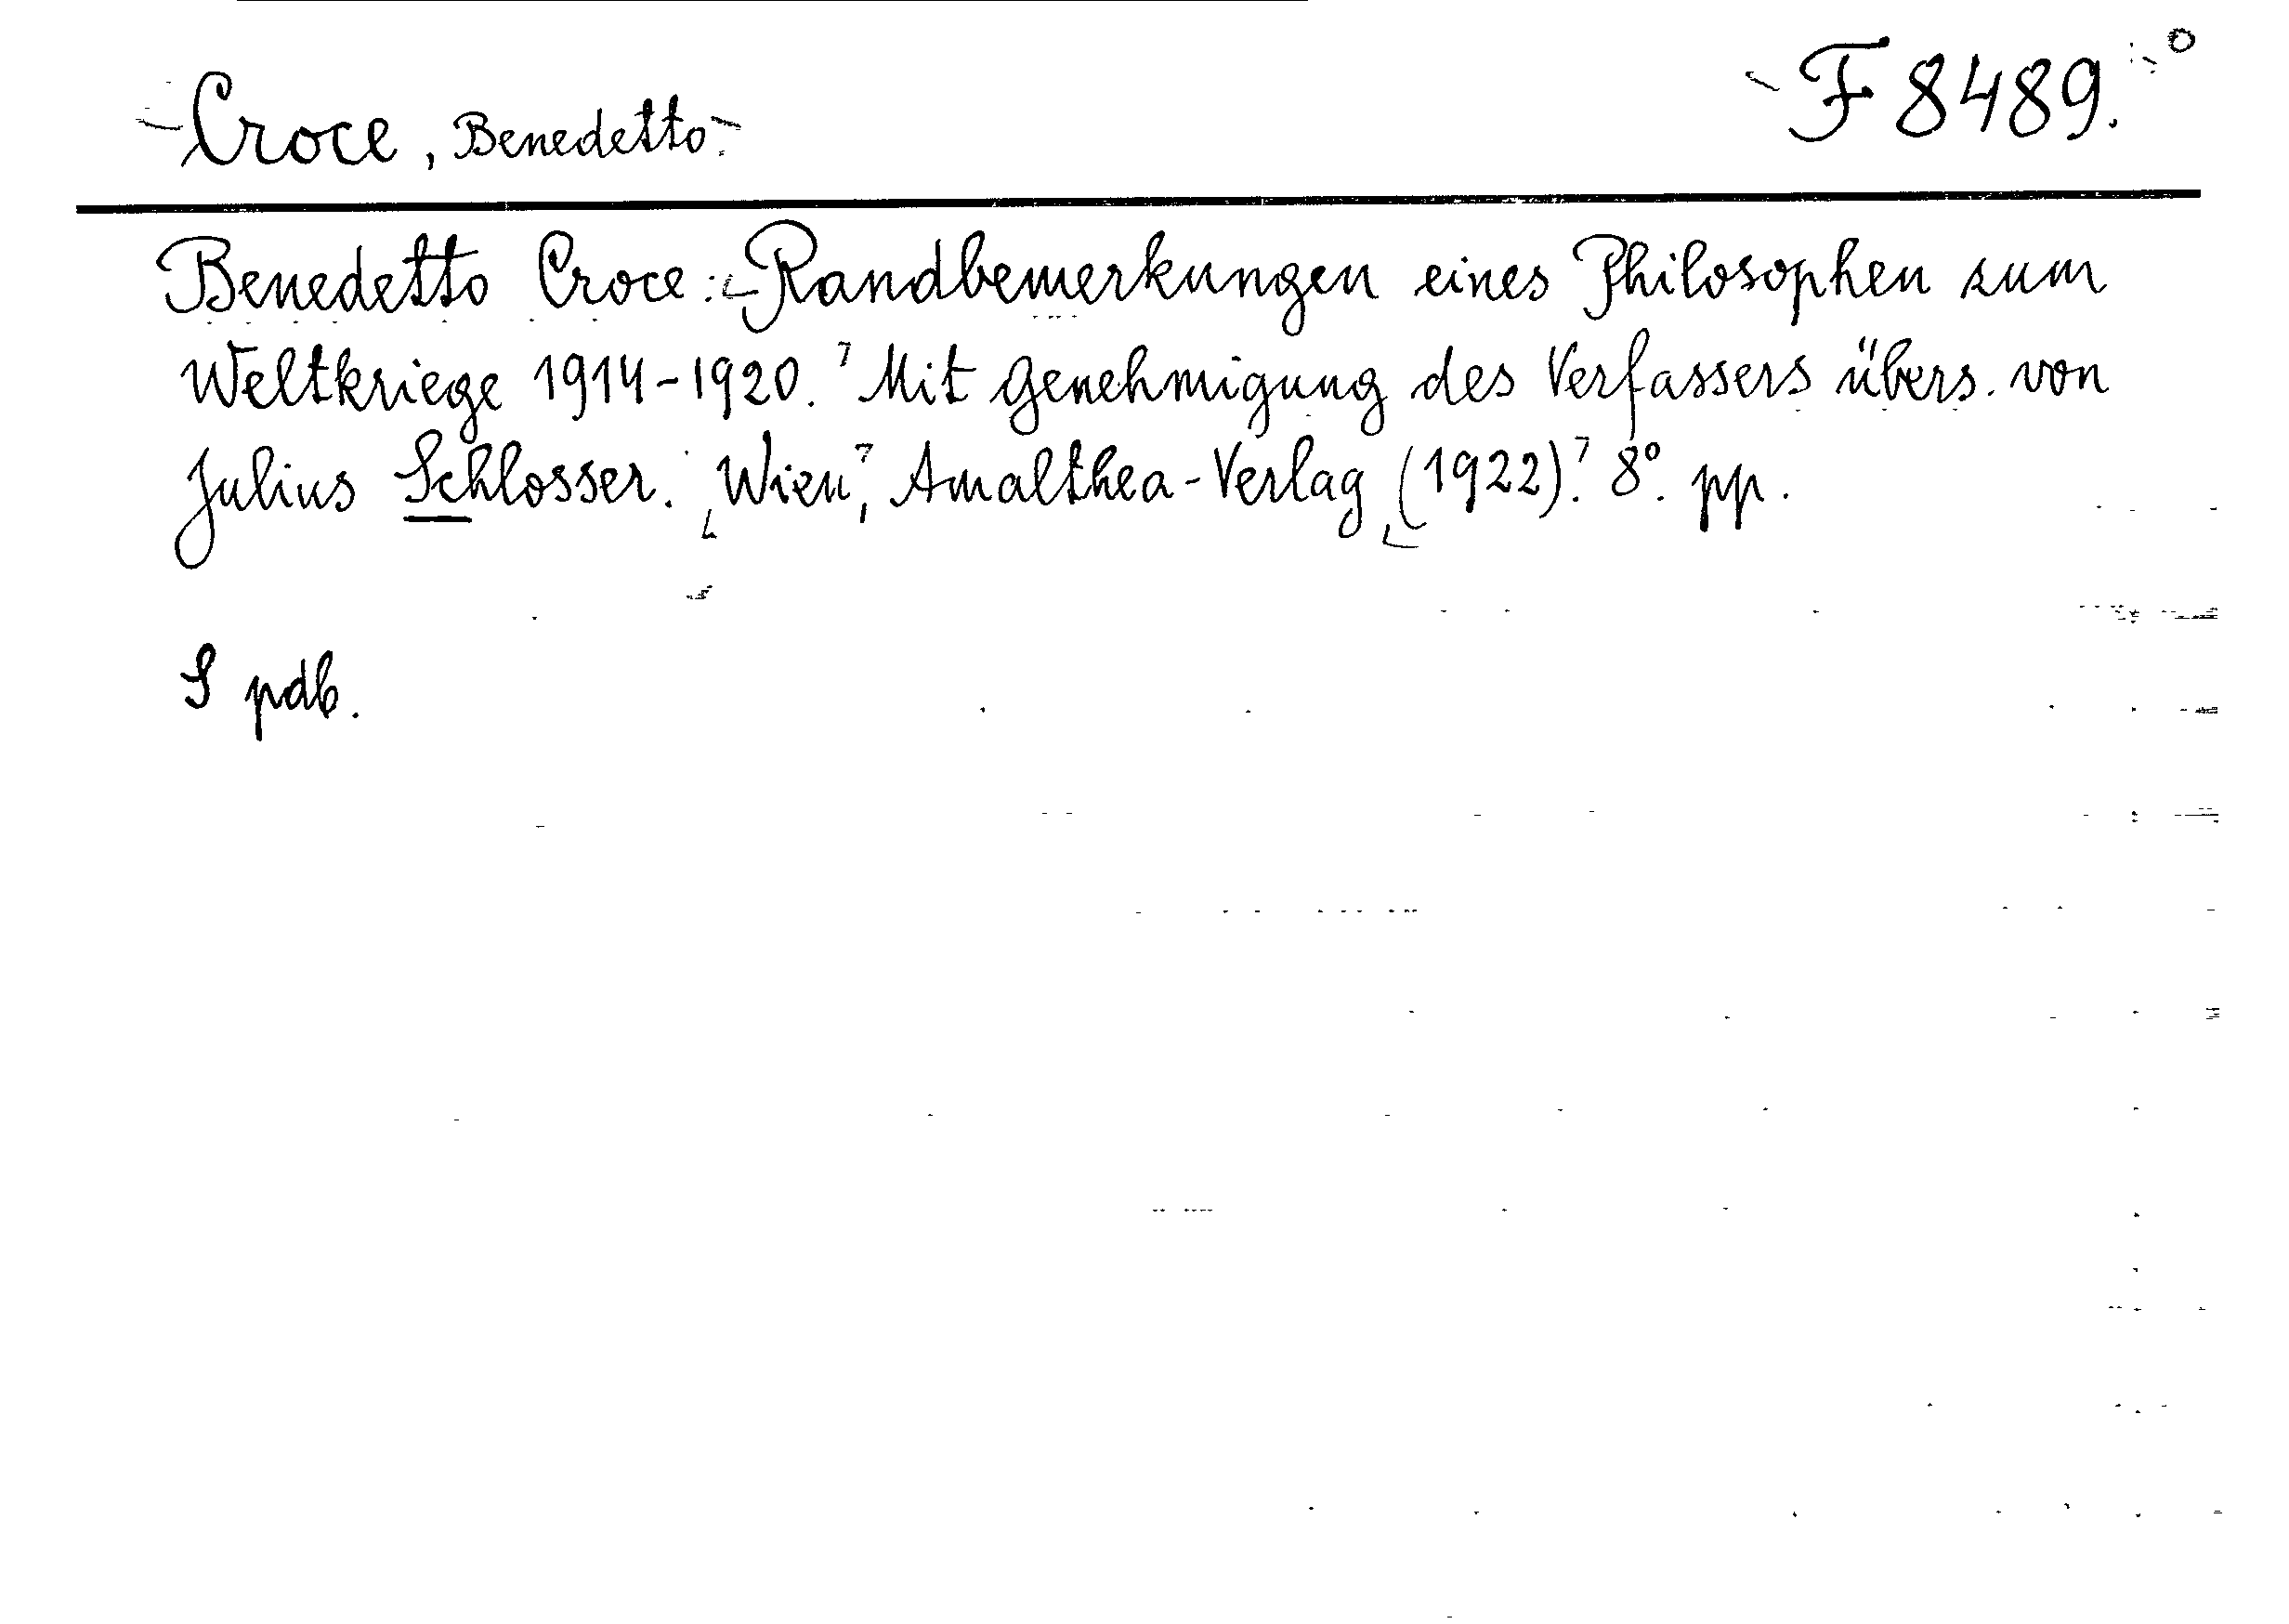 Croce, Benedetto. F 8489.°
Benedetto Croce: Randbemerkungen eines Philosophen zum
Weltkriege 1914-1920. Mit Genehmigung des Verfassers übers. von
Julius Schlosser. Wien, Amalthea-Verlag (1922). 8°. pp.
S pdb.